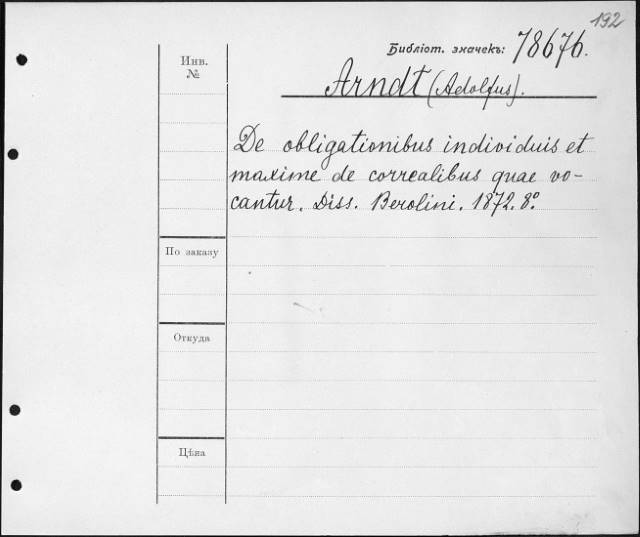 192
Библіот. значекъ: 78676.
Инв.
№
Arndt (Adolfus).
De obligationibus individuis et
maxime de correalibus quae vo-
cantur. Diss. Berolini. 1872. 8º.
По заказу
Откуда
Цѣна